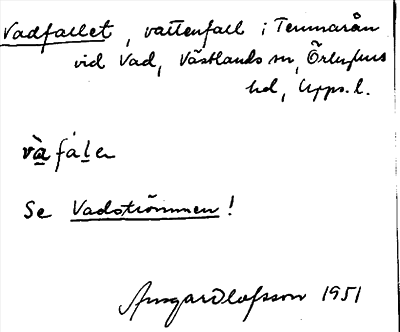 Vadfallet, vattenfall i Temnarån
vid Vad, Västlands sn, Örbyhus
hd, Upps. l.
và̱fáḻen
Se Vadströmmen!
Ansgar Olofsson 1951